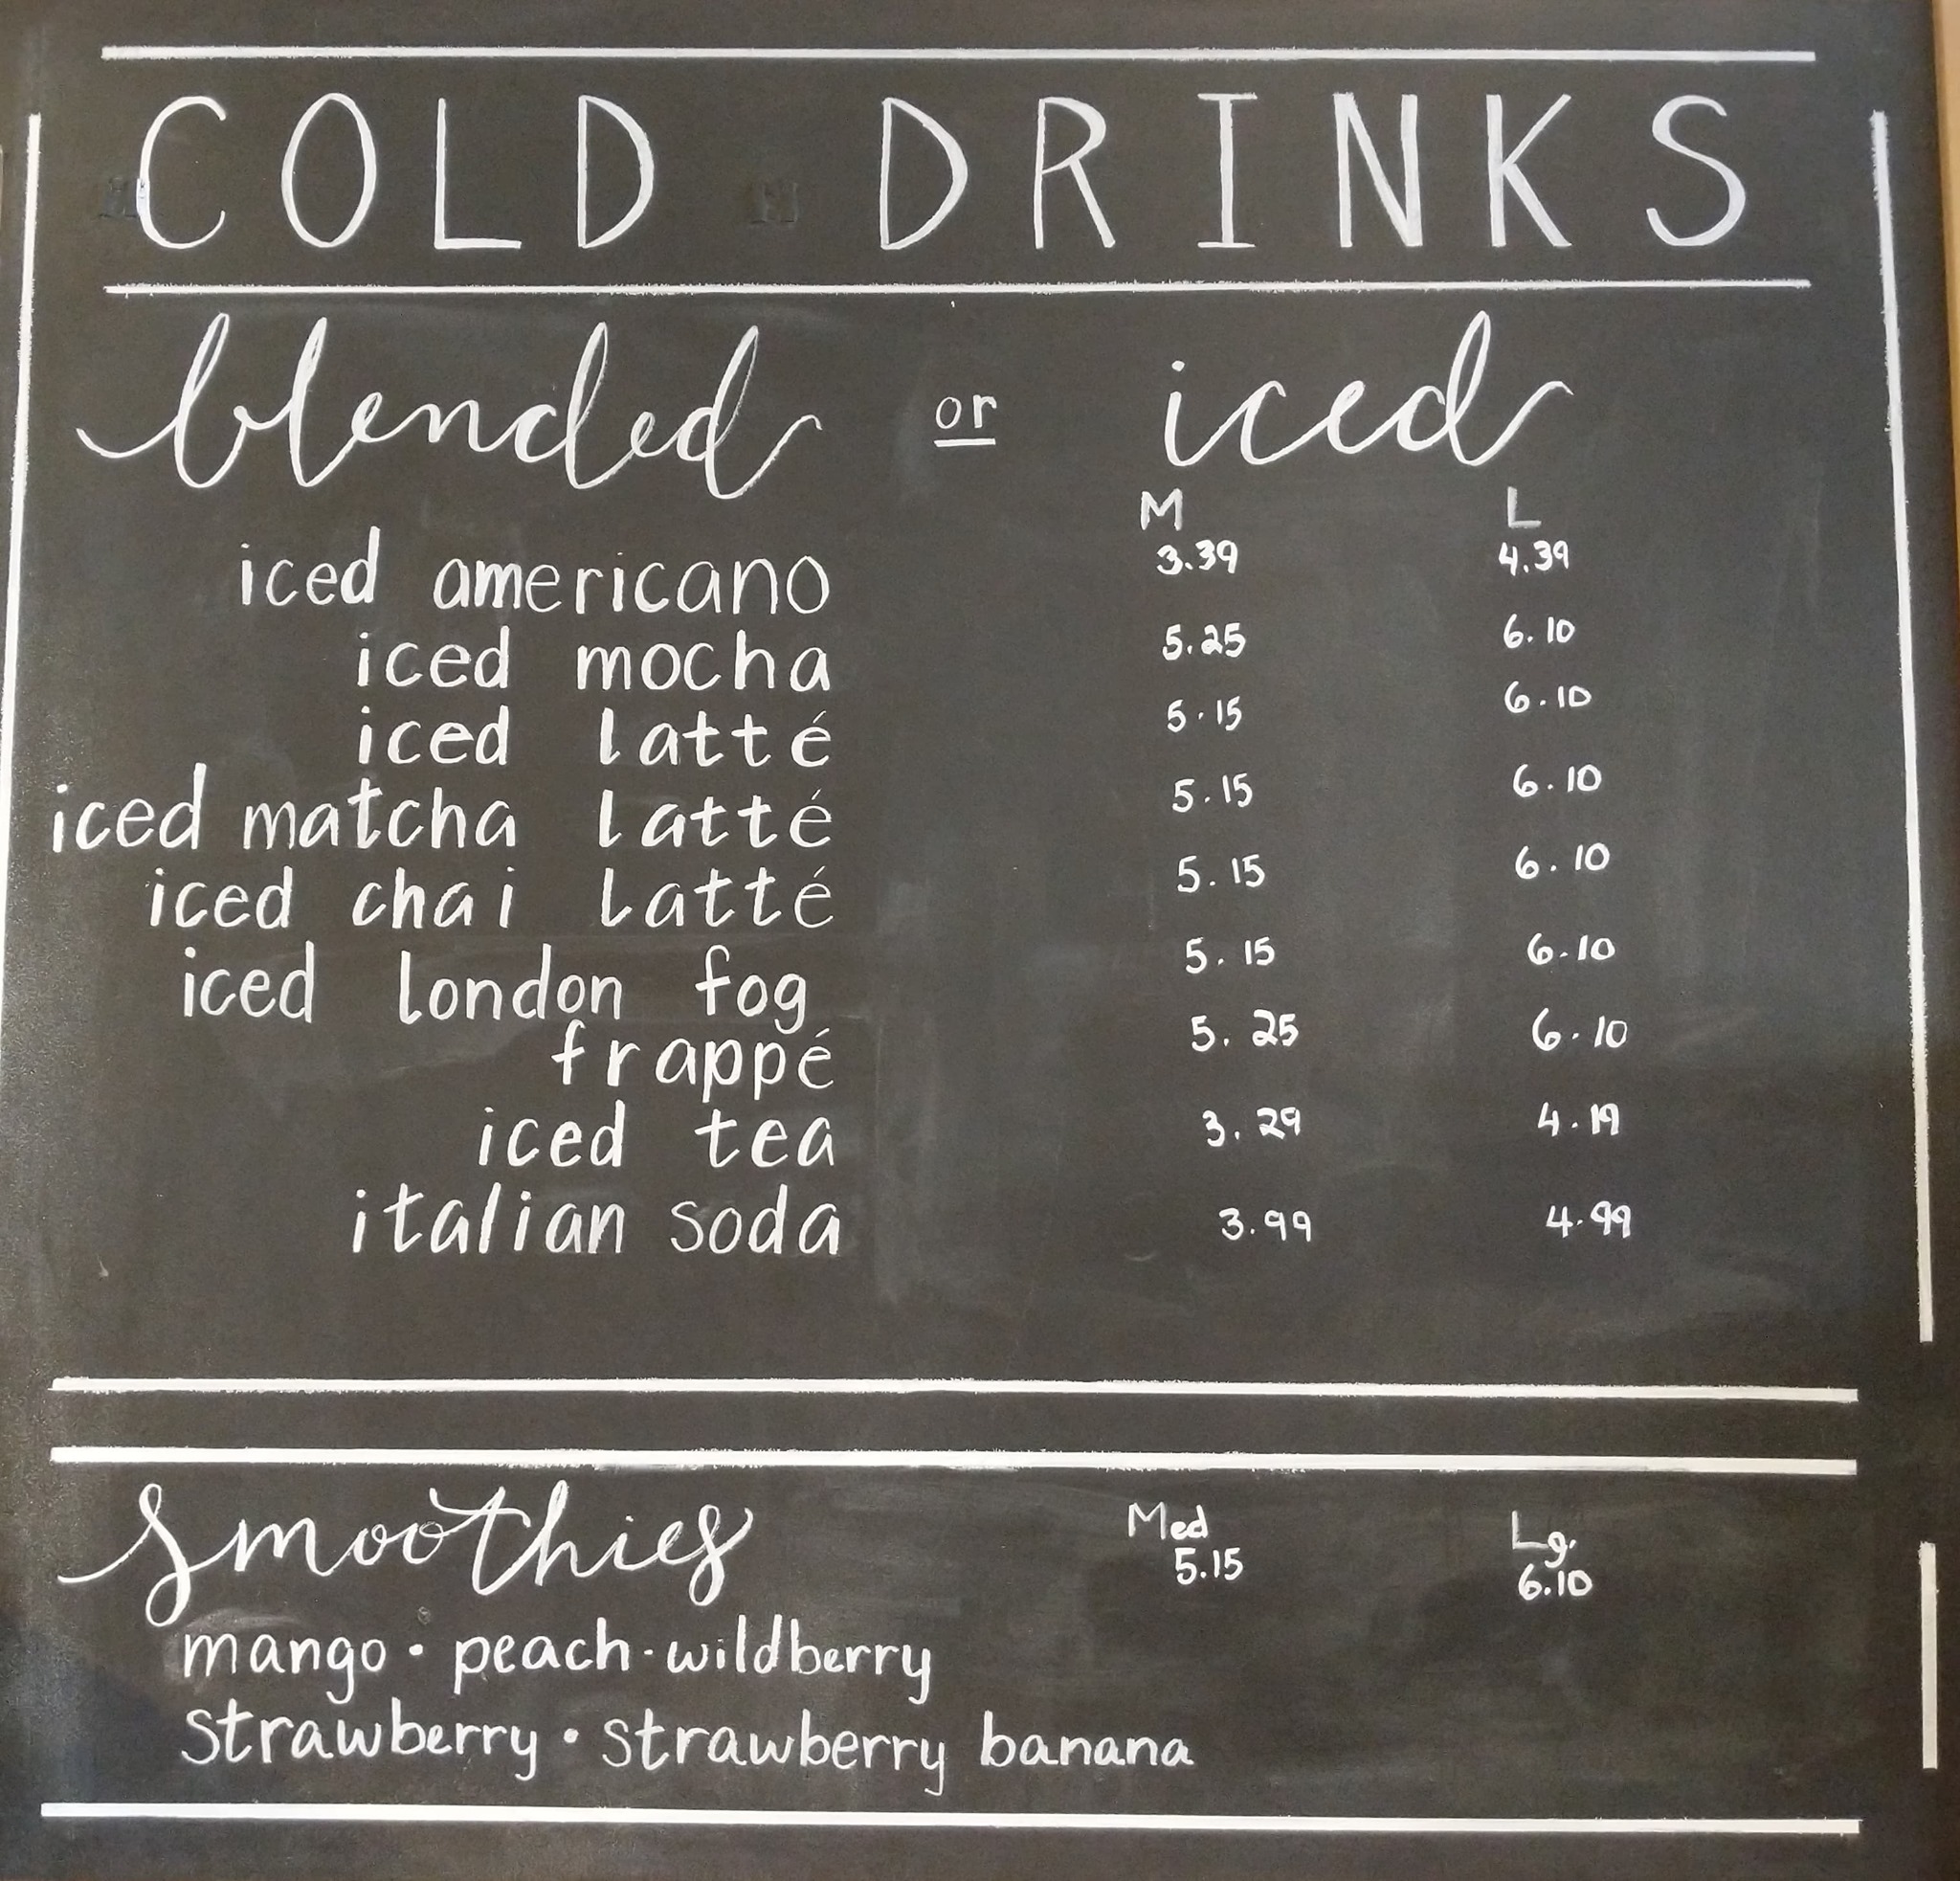 COLD DRINKS
blended or iced
M L
iced americano 3.39 4.39
iced mocha 5.25 6.10
iced latté 5.15 6.10
iced matcha latté 5.15 6.10
iced chai latté 5.15 6.10
iced london fog 5.15 6.10
frappé 5.25 6.10
iced tea 3.29 4.19
italian soda 3.99 4.99
smoothies Med Lg.
5.15 6.10
mango · peach · wildberry
strawberry · strawberry banana